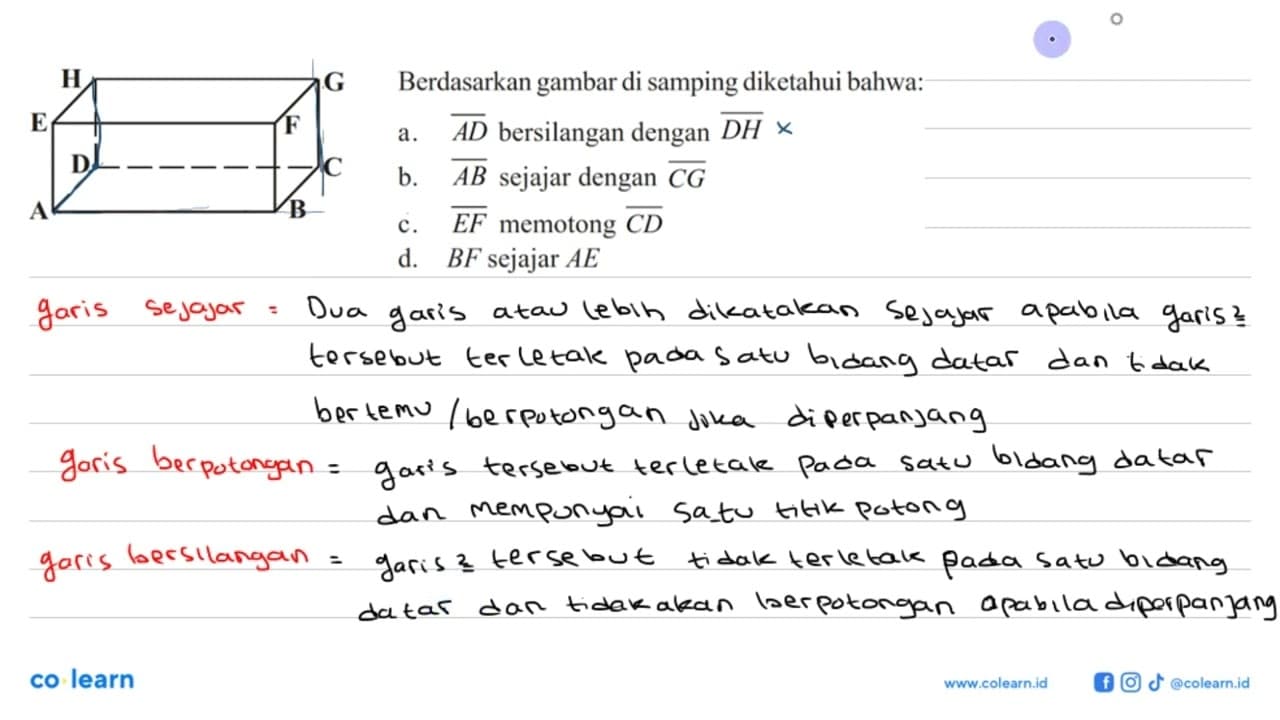 H
G
E
F
D
C
A
B
Berdasarkan gambar di samping diketahui bahwa:
a. AD bersilangan dengan DH ×
b. AB sejajar dengan CG
c. EF memotong CD
d. BF sejajar AE
garis sejajar = Dua garis atau lebih dikatakan sejajar apabila garis2
tersebut terletak pada satu bidang datar dan tidak
bertemu / berpotongan jika diperpanjang
garis berpotongan = garis tersebut terletak pada satu bidang datar
dan mempunyai satu titik potong
garis bersilangan = garis2 tersebut tidak terletak pada satu bidang
datar dan tidak akan berpotongan apabila diperpanjang
co learn
www.colearn.id
@colearn.id